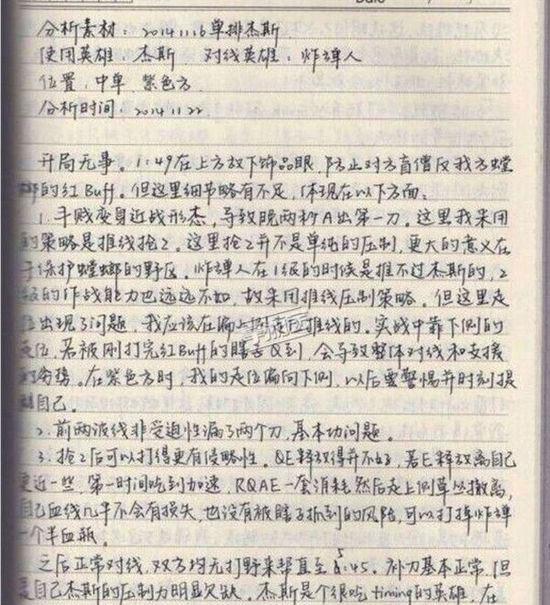 Date
分析素材：2014.11.16单排杰斯
使用英雄：杰斯 对线英雄：炸弹人
位置：中单 紫色方
分析时间：2014.11.22
开局无事。1:49在上方放下饰品眼，防止对方盲僧反我方螳
螂的红Buff。但这里细节略有不足，体现在以下方面：
1. 手贱变身近战形态，导致晚两秒A出第一刀。这里我采用
的策略是推线抢2。这里抢2并不是单纯的压制，更大的意义在
于保护螳螂的野区，炸弹人在1级的时候是推不过杰斯的，2
级的作战能力也远远不如，故采用推线压制策略。但这里走
位出现了问题，我应该在偏上侧走位推线的。实战中靠下侧的
走位，若被刚打完红Buff的瞎子Q到，会导致整体对线和支援
的劣势。在紫色方时，我的走位偏向下侧，以后要警惕并时刻提
醒自己。
2. 前两波线非受迫性漏了两个刀，基本功问题。
3. 抢2后可以打得更有侵略性。QE释放得并不好，若E释放离自己
更近一些，第一时间吃到加速，RQAE一套消耗然后走上侧草丛撤离，
自己血线几乎不会有损失，也没有被瞎子抓到的风险，可以打掉炸弹
一个半血瓶。
之后正常对线，双方均无打野来帮直至5:45。补刀基本正常，但
是自己杰斯的压制力明显欠缺。杰斯是个很吃timing的英雄，在